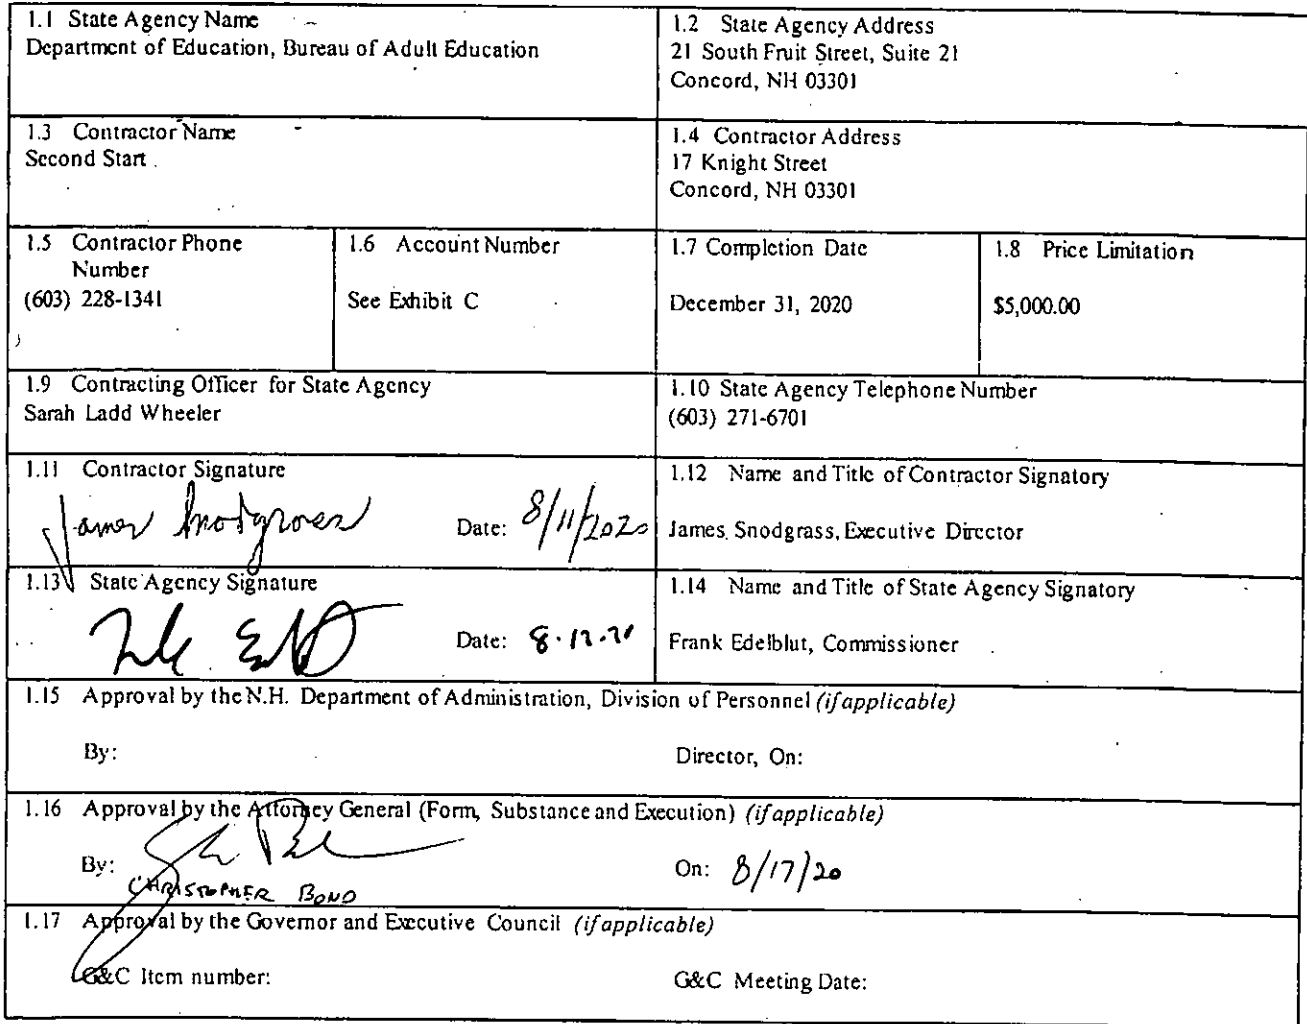 1.1 State Agency Name
Department of Education, Bureau of Adult Education
1.2 State Agency Address
21 South Fruit Street, Suite 21
Concord, NH 03301
1.3 Contractor Name
Second Start
1.4 Contractor Address
17 Knight Street
Concord, NH 03301
1.5 Contractor Phone
Number
(603) 228-1341
1.6 Account Number
See Exhibit C
1.7 Completion Date
December 31, 2020
1.8 Price Limitation
$5,000.00
1.9 Contracting Officer for State Agency
Sarah Ladd Wheeler
1.10 State Agency Telephone Number
(603) 271-6701
1.11 Contractor Signature
James Snodgrass
Date: 8/11/2020
1.12 Name and Title of Contractor Signatory
James Snodgrass, Executive Director
1.13 State Agency Signature
Date:
1.14 Name and Title of State Agency Signatory
Frank Edelblut, Commissioner
1.15 Approval by the N.H. Department of Administration, Division of Personnel (if applicable)
By:
Director, On:
1.16 Approval by the Attorney General (Form, Substance and Execution) (if applicable)
By:
CHRISTOPHER BOND
On: 8/17/20
1.17 Approval by the Governor and Executive Council (if applicable)
G&C Item number:
G&C Meeting Date: